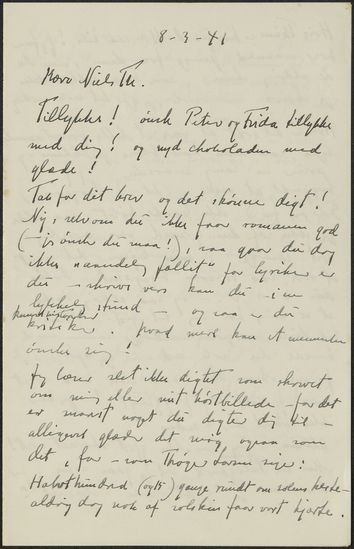 8-3-41
Kære Niels Th.
Tillykke! ønsk Peter og Frida tillykke
med dig! og nyd chokoladen med
glæde!
Tak for dit brev og det skønne digt!
Nej, selv om du ikke faar romanen god
(- jeg ønsker du maa!), saa gaar du dog
ikke "aandelig fallit" for lyriker er
du - skrive vers kan du - i en
lykkelig stund - og saa er du
kritiker. hvad mere kan et menneske
ønske sig!
Jeg læser slet ikke digtet som skrevet
om mig eller mit høstbillede - for det
er mest noget du digter dig til -
alligevel glæder det mig ogsaa som
det, for - som Thøger Larsen siger:
Halvothundred (og ) gange rundt om solens kerte
aldrig dog nok af solskin faar vort hjærte.